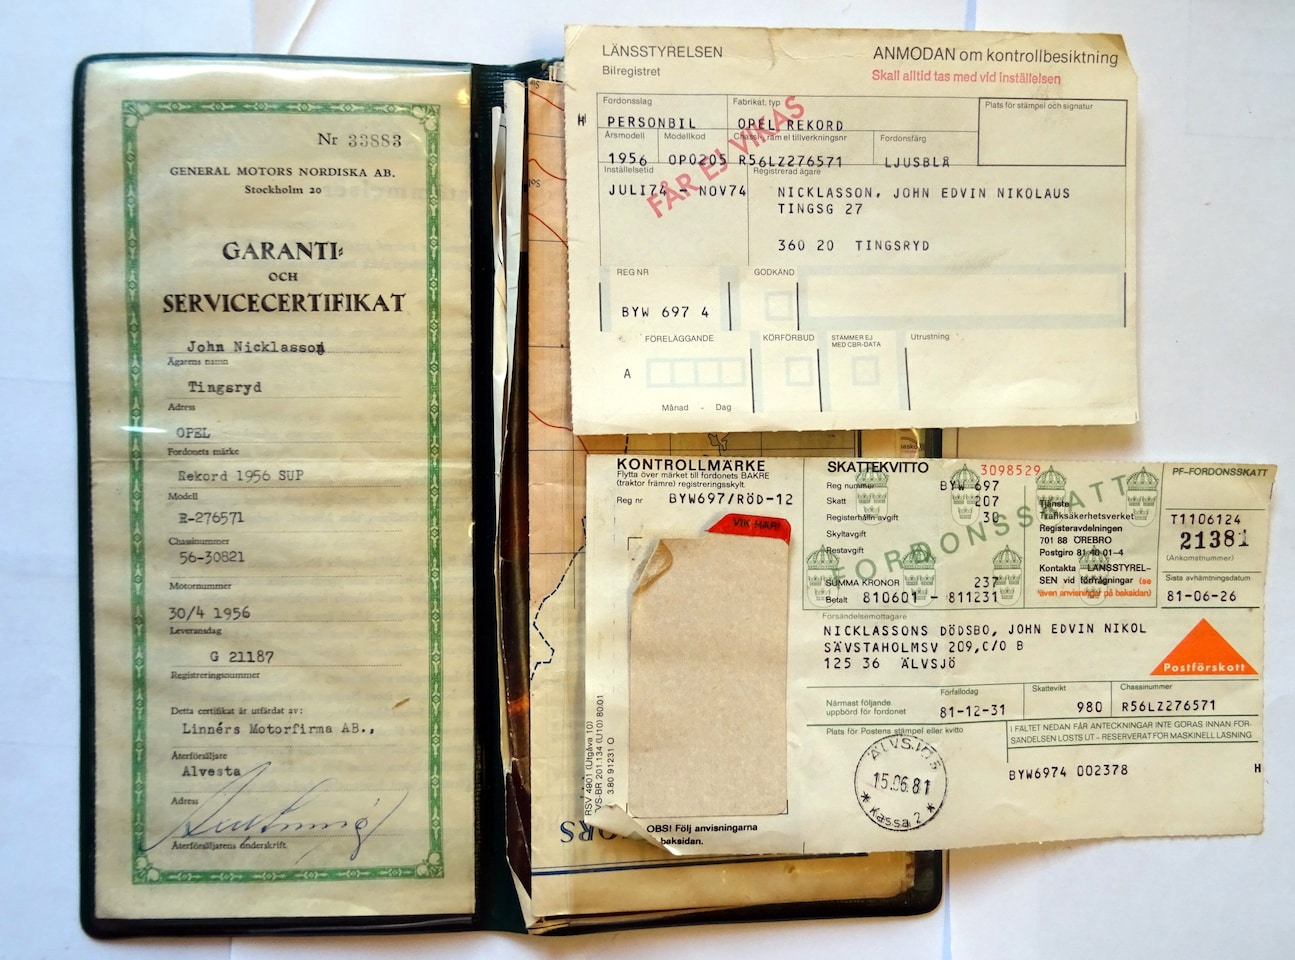 Nr 33883
GENERAL MOTORS NORDISKA AB.
Stockholm 20
GARANTI-
OCH
SERVICECERTIFIKAT
John Nicklasson
Ägarens namn
Tingsryd
Adress
OPEL
Fordonets märke
Rekord 1956 SUP
Modell
R-276571
Chassinummer
56-30821
Motornummer
30/4 1956
Leveransdag
G 21187
Registreringsnummer
Detta certifikat är utfärdat av:
Linnérs Motorfirma AB.,
Återförsäljare
Alvesta
Adress
Återförsäljarens underskrift
LÄNSSTYRELSEN
Bilregistret
ANMODAN om kontrollbesiktning
Skall alltid tas med vid inställelsen
Fordonsslag
Fabrikat, typ
Plats för stämpel och signatur
H
PERSONBIL
OPEL REKORD
FÅR EJ VIKAS
Årsmodell
Modellkod
Chassie, ram el tillverkningsnr
Fordonsfärg
1956
OP0205
R56LZ276571
LJUSBLÅ
Inställelsetid
Registrerad ägare
JULI74 - NOV74
NICKLASSON, JOHN EDVIN NIKOLAUS
TINGSG 27
360 20 TINGSRYD
REG NR
GODKÄND
BYW 697 4
FÖRELÄGGANDE
KÖRFÖRBUD
STÄMMER EJ
MED CBR-DATA
Utrustning
A
Månad - Dag
KONTROLLMÄRKE
Flytta över märket till fordonets BAKRE
(traktor främre) registreringsskylt.
Reg nr BYW697/RÖD-12
VIK HÄR!
RSV 4901 (Utgåva 10)
VS-BR 201.134 (U10) 80.01
3.80 91231 O
OBS! Följ anvisningarna
baksidan.
SKATTEKVITTO
3098529
PF-FORDONSSKATT
FORDONSSKATT
Reg nummer BYW 697
Skatt 207
Registerhålln avgift 30
Skyltavgift
Restavgift
SUMMA KRONOR 237
Betalt 810601 - 811231
Tjänste
Trafiksäkerhetsverket
Registeravdelningen
701 88 ÖREBRO
Postgiro 81 40 01-4
Kontakta LÄNSSTYREL-
SEN vid förfrågningar (se
även anvisningar på baksidan)
T1106124
21381
(Ankomstnummer)
Sista avhämtningsdatum
81-06-26
Försändelsemottagare
NICKLASSONS DÖDSBO, JOHN EDVIN NIKOL
SÄVSTAHOLMSV 209,C/O B
125 36 ÄLVSJÖ
Postförskott
Närmast följande
uppbörd för fordonet
Förfallodag
81-12-31
Skattevikt
980
Chassinummer
R56LZ276571
Plats för Postens stämpel eller kvitto
I FÄLTET NEDAN FÅR ANTECKNINGAR INTE GÖRAS INNAN FÖR-
SÄNDELSEN LÖSTS UT - RESERVERAT FÖR MASKINELL LÄSNING
BYW6974 002378
H
ÄLVSJÖ 5
15.06.81
* Kassa 2 *
ORS